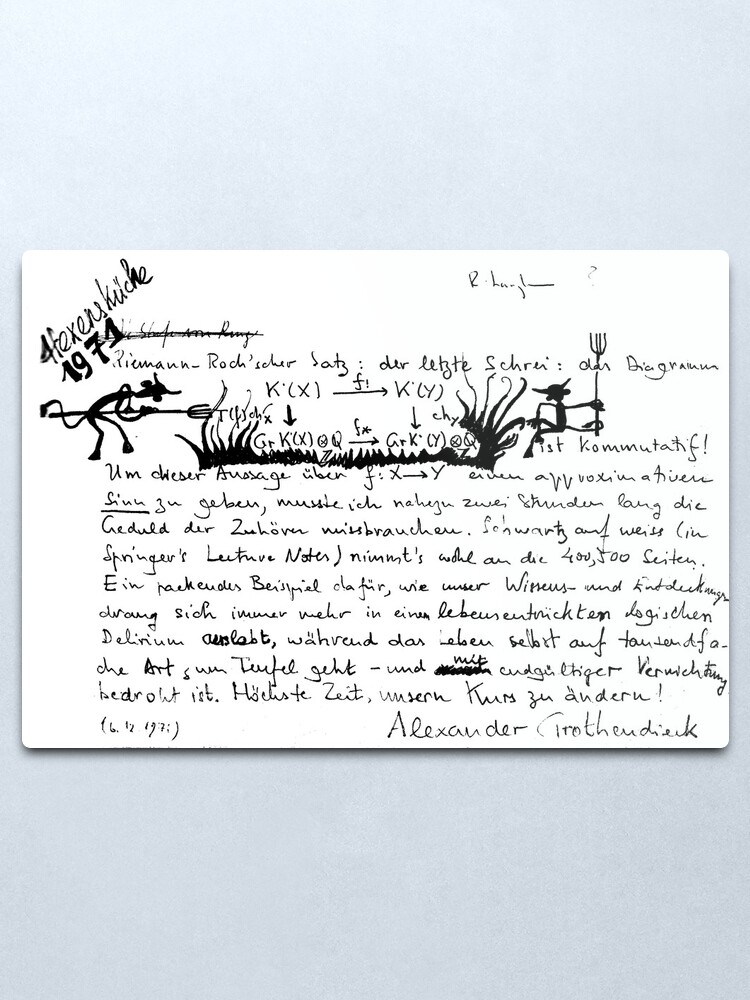 Hexenküche
1971
?
Riemann-Roch'scher Satz: der letzte Schrei: das Diagramm
K˙(X) f! → K˙(Y)
↓ ↓ ch_Y
Gr K˙(X) ⊗_Z Q f* → Gr K˙(Y) ⊗_Z Q
ist kommutatif!
Um dieser Aussage über f: X → Y einen approximativen
Sinn zu geben, musste ich nahezu zwei Stunden lang die
Geduld der Zuhörer missbrauchen. Schwartz auf weiss (in
Springer's Lecture Notes) nimmt's wohl an die 400, 500 Seiten.
Ein packendes Beispiel dafür, wie unser Wissens- und Entdeckungs
drang sich immer mehr in einem lebensentrückten logischen
Delirium auslebt, während das Leben selbst auf tausendfa-
che Art zum Teufel geht - und mit endgültiger Vernichtung
bedroht ist. Höchste Zeit, unsern Kurs zu ändern!
(6.12.1971) Alexander Grothendieck